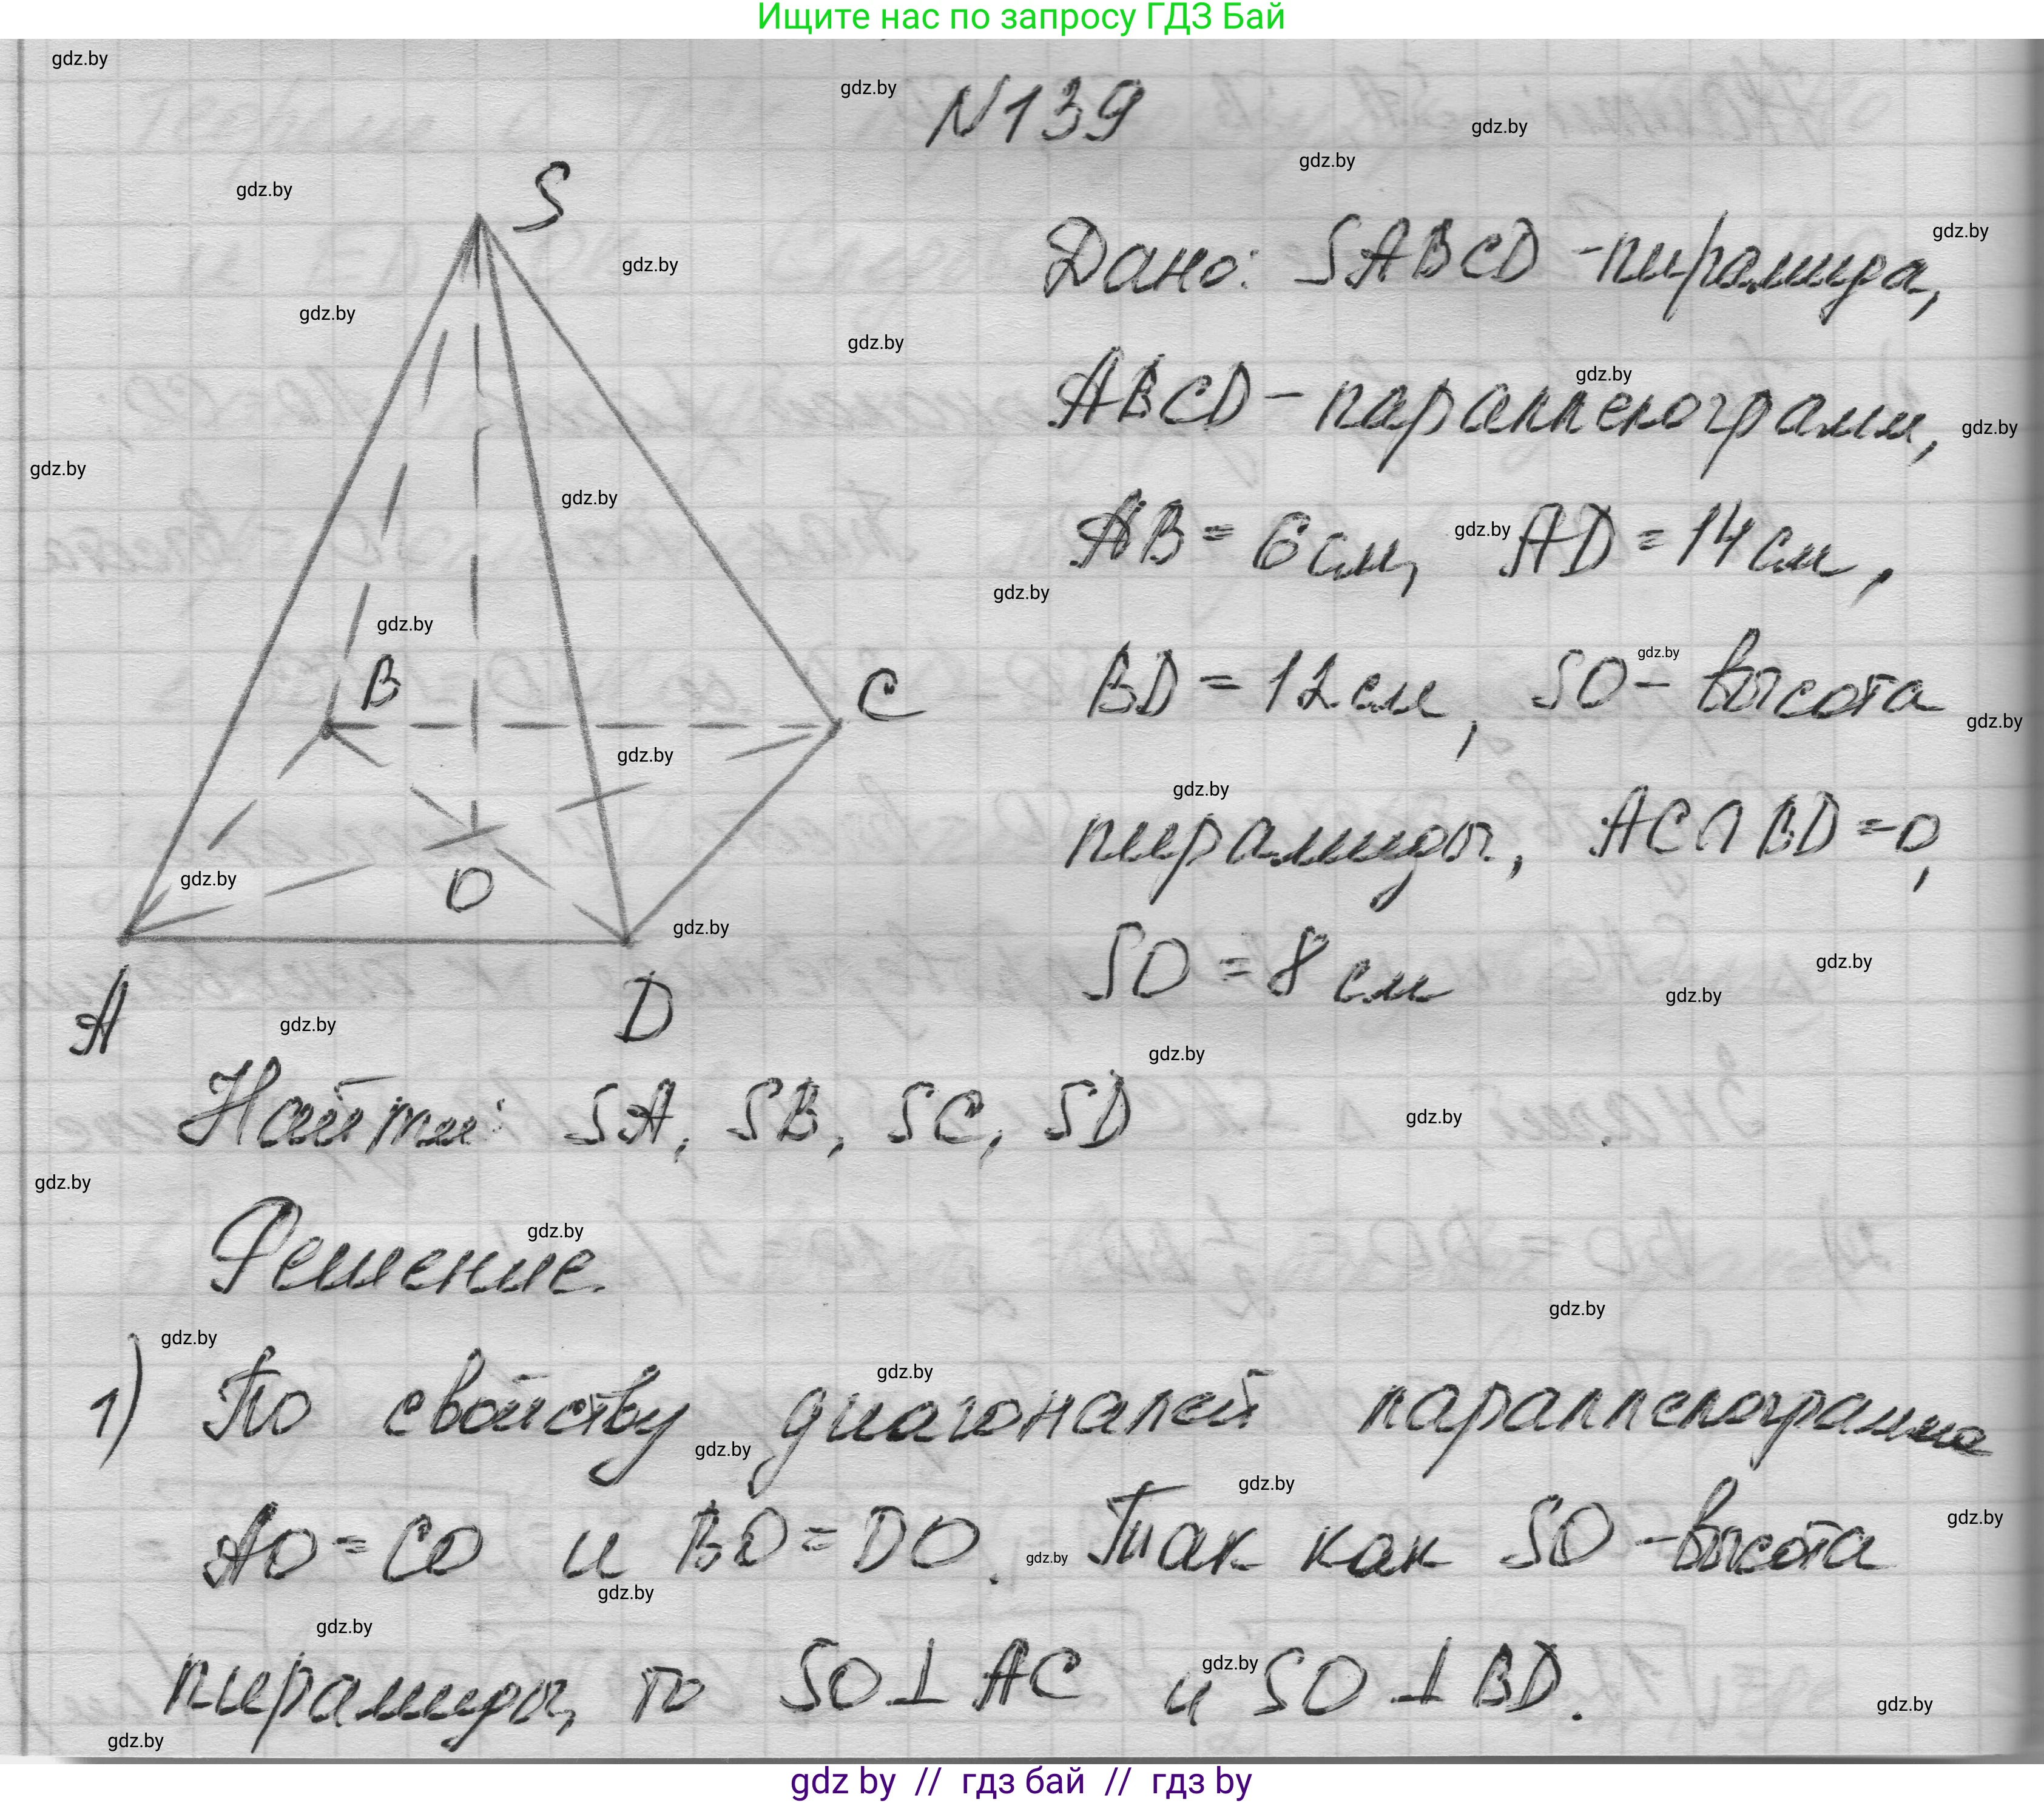 Ищите нас по запросу ГДЗ Бай
gdz.by
gdz.by
N139
gdz.by
gdz.by
gdz.by
S
gdz.by
gdz.by
Дано: SABCD - пирамида,
gdz.by
gdz.by
gdz.by
ABCD - параллелограмм,
gdz.by
gdz.by
gdz.by
AB = 6 см, AD = 14 см,
gdz.by
gdz.by
gdz.by
B
C
BD = 12 см, SO - высота
gdz.by
gdz.by
gdz.by
gdz.by
пирамиды, AC∩BD = O,
gdz.by
O
gdz.by
SO = 8 см
gdz.by
gdz.by
A
D
gdz.by
gdz.by
Найти: SA, SB, SC, SD
gdz.by
gdz.by
Решение.
gdz.by
gdz.by
gdz.by
gdz.by
1) По свойству диагоналей параллелограмма
gdz.by
gdz.by
gdz.by
AO = CO и BO = DO. Так как SO - высота
gdz.by
gdz.by
gdz.by
пирамиды, то SO⊥AC и SO⊥BD.
gdz.by
gdz.by
gdz.by
gdz by // гдз бай // gdz by